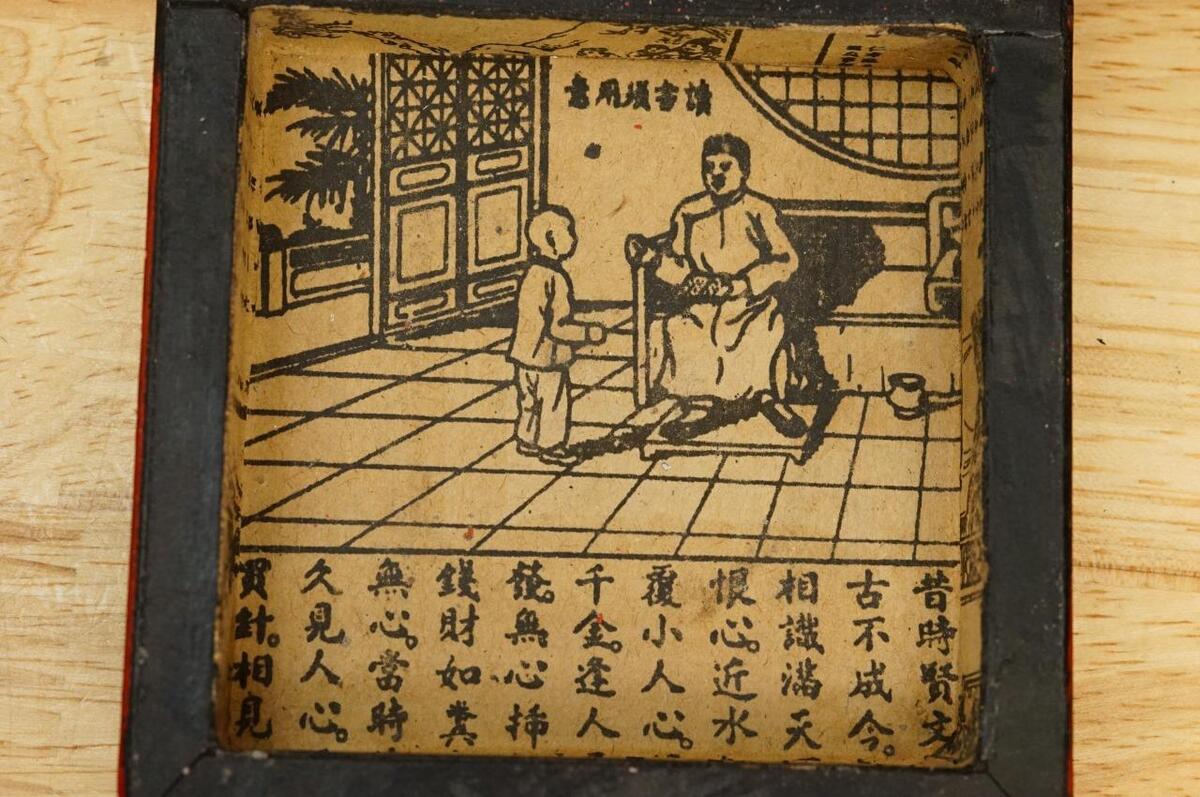 讀書須用意
昔時賢文
古不成今。
相識滿天
恨心。近水
覆小人心。
千金。逢人
發。無心插
錢財如糞
無心。當時
久見人心。
買針。相見